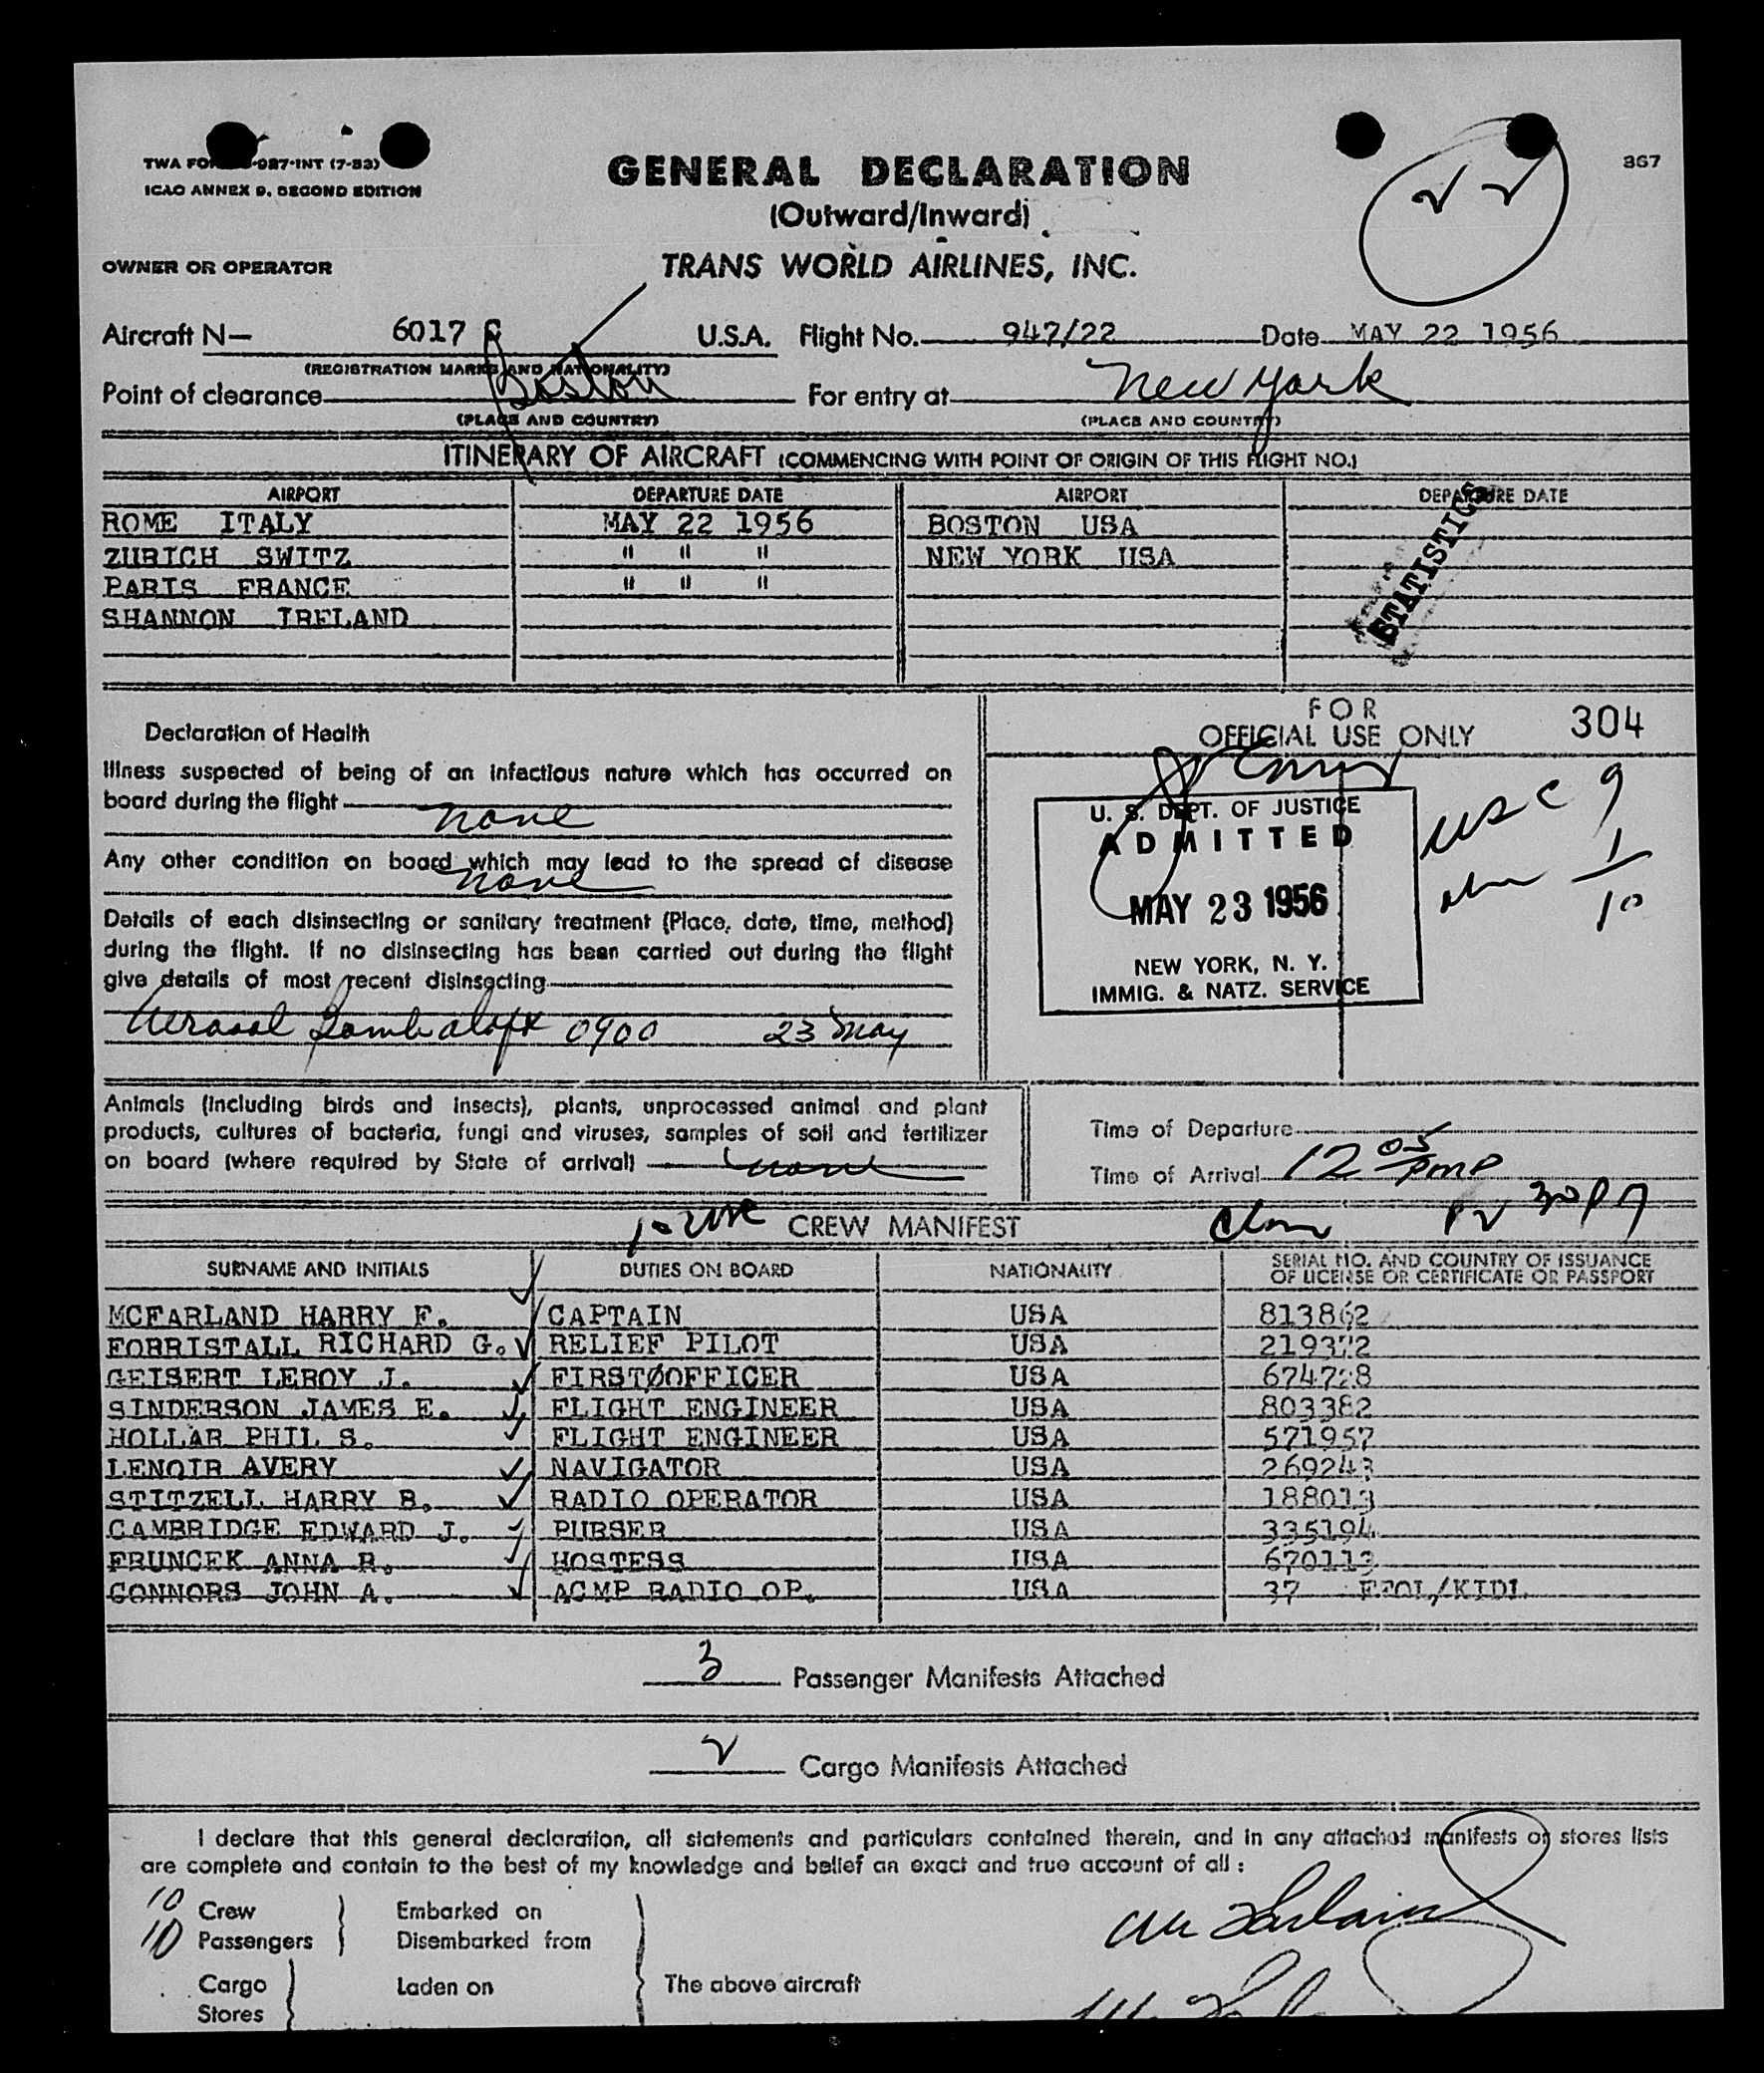 TWA FO 027-INT (7-53)
ICAO ANNEX 9, SECOND EDITION
GENERAL DECLARATION
(Outward/Inward)
367
OWNER OR OPERATOR
TRANS WORLD AIRLINES, INC.
Aircraft N— 6017 C U.S.A. Flight No. 947/22 Date MAY 22 1956
(REGISTRATION MARKS AND NATIONALITY)
Point of clearance Boston For entry at New York
(PLACE AND COUNTRY) (PLACE AND COUNTRY)
ITINERARY OF AIRCRAFT (COMMENCING WITH POINT OF ORIGIN OF THIS FLIGHT NO.)
AIRPORT DEPARTURE DATE AIRPORT DEPARTURE DATE
ROME ITALY MAY 22 1956 BOSTON USA
ZURICH SWITZ " " " NEW YORK USA
PARIS FRANCE " " "
SHANNON IRELAND
STATISTICS
Declaration of Health
Illness suspected of being of an infectious nature which has occurred on
board during the flight none
Any other condition on board which may lead to the spread of disease
none
Details of each disinsecting or sanitary treatment (Place, date, time, method)
during the flight. If no disinsecting has been carried out during the flight
give details of most recent disinsecting
Aerosol Bomb 0900 23 May
FOR
OFFICIAL USE ONLY
304
U. S. DEPT. OF JUSTICE
ADMITTED
MAY 23 1956
NEW YORK, N. Y.
IMMIG. & NATZ. SERVICE
usc 9
1
10
Animals (including birds and insects), plants, unprocessed animal and plant
products, cultures of bacteria, fungi and viruses, samples of soil and fertilizer
on board (where required by State of arrival) none
Time of Departure
Time of Arrival 12 05
CREW MANIFEST
SURNAME AND INITIALS DUTIES ON BOARD NATIONALITY SERIAL NO. AND COUNTRY OF ISSUANCE
OF LICENSE OR CERTIFICATE OR PASSPORT
MCFARLAND HARRY F. CAPTAIN USA 813862
FORRISTALL RICHARD G. RELIEF PILOT USA
GEISERT LEROY J. FIRSTØOFFICER USA 674728
SINDERSON JAMES E. FLIGHT ENGINEER USA 803382
HOLLAR PHIL S. FLIGHT ENGINEER USA 571957
LENOIR AVERY NAVIGATOR USA 269243
STITZELL HARRY B. RADIO OPERATOR USA 188013
CAMBRIDGE EDWARD J. PURSER USA 335194
FRUNCEK ANNA R. HOSTESS USA 670113
CONNORS JOHN A. ACMP RADIO OP. USA 37
3 Passenger Manifests Attached
2 Cargo Manifests Attached
I declare that this general declaration, all statements and particulars contained therein, and in any attached manifests or stores lists
are complete and contain to the best of my knowledge and belief an exact and true account of all :
10 Crew Embarked on
10 Passengers Disembarked from
Cargo Laden on The above aircraft
Stores